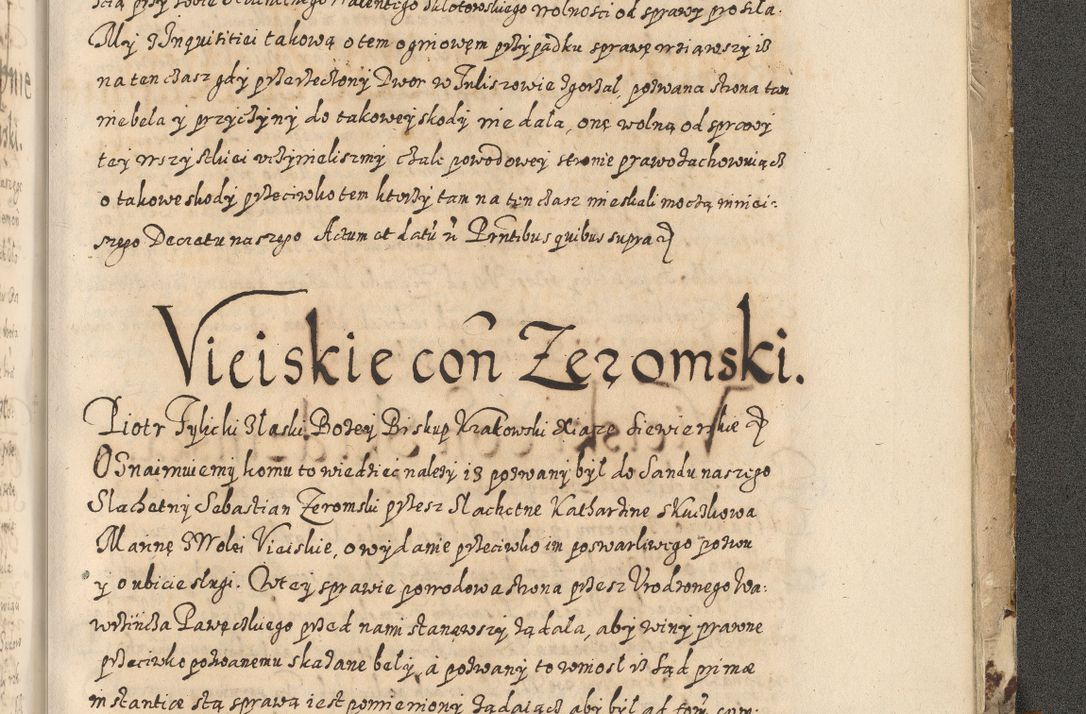 przy sobie Walentego Sklotowskiego wolności od sprawy prosiła.
My z Inquisitiei takową o tem ogniowem przypadku sprawę wziąwszy iż
na ten czasz gdy przerzeczony Dwor w Juliszowie zgorzał, pozwana strona tam
nie beła y przyczyny do takowey skody nie dała, onę wolną od sprawy
tey wszystkiei uczyneliszmy czale powodowey stronie prawo zachowuiącz
o takowe skody przeciwko tem ktorzy tam na ten czasz mieskali moczą niniei:
szego Decretu naszego Actum et datũ ũ Prñtibus quibus supra
Vieiskie coñ Zeromski.
Piotr Tylicki z Laski Bozey Biskup Krakowski Xiąze Siewierskie
Oznaimuiemy komu to wiedzieć nalezy iz pozwany był do Sandu naszego
Slachetny Sebastian Zeromski przesz Slachetne Katharzine Skuczkowa
Marinę z Wolei Vieiskie, o wydanie przeciwko im poswarliwego pozwu
y o ubicie slugi. W tey sprawie powodowa strona przesz Urodzonego Wa:
wrzińcza Pawęczkiego przed nami stanąwszy ządała, aby winy prawne
przeciwko pozwanemu skazane beły, a pozwany to wniosł iz Sąd primæ
instantiæ stą sprawą iest pomieniony ządaiącz aby był ad forũ com: